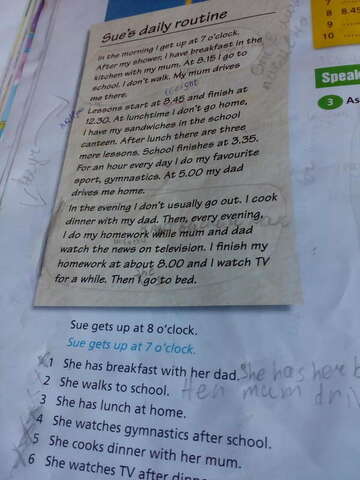 Sue's daily routine
In the morning I get up at 7 o'clock.
After my shower, I have breakfast in the
kitchen with my mum. At 8.15 I go to
school. I don't walk. My mum drives
me there.
Lessons start at 8.45 and finish at
12.30. At lunchtime I don't go home,
I have my sandwiches in the school
canteen. After lunch there are three
more lessons. School finishes at 3.35.
For an hour every day I do my favourite
sport, gymnastics. At 5.00 my dad
drives me home.
In the evening I don't usually go out. I cook
dinner with my dad. Then, every evening,
I do my homework while mum and dad
watch the news on television. I finish my
homework at about 8.00 and I watch TV
for a while. Then I go to bed.
7
8 8.45
9
10
Speak
3 As
Sue gets up at 8 o'clock.
Sue gets up at 7 o'clock.
1 She has breakfast with her dad. She has here b
2 She walks to school. Her mum dri
3 She has lunch at home.
4 She watches gymnastics after school.
5 She cooks dinner with her mum.
6 She watches TV after dinne